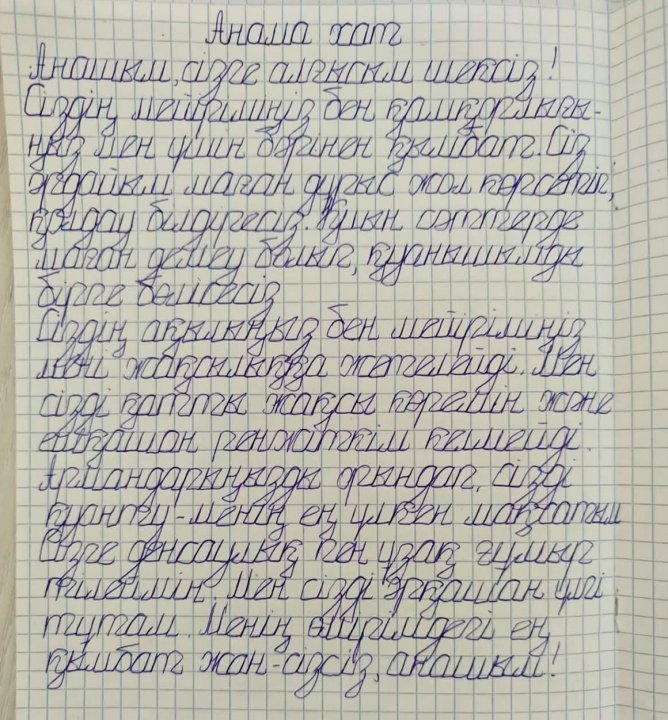 Анама хат
Анашым, сізге алғысым шексіз!
Сіздің мейіріміңіз бен қамқорлығы-
ңыз мен үшін бәрінен қымбат. Сіз
әрдайым маған дұрыс жол көрсетіп,
қолдау білдіресіз. Қиын сәттерде
маған демеу болып, қуанышымды
бірге бөлісесіз
Сіздің ақылыңыз бен мейіріміңіз
мені жақсылыққа жетелейді. Мен
сізді қатты жақсы көремін және
ешқашан ренжіткім келмейді.
Армандарыңызды орындап, сізді
қуанту-менің ең үлкен мақсатым
Сізге денсаулық пен ұзақ ғұмыр
тілеймін. Мен сізді әрқашан үлгі
тұтам. Менің өмірімдегі ең
қымбат жан-сізсіз, анашым!